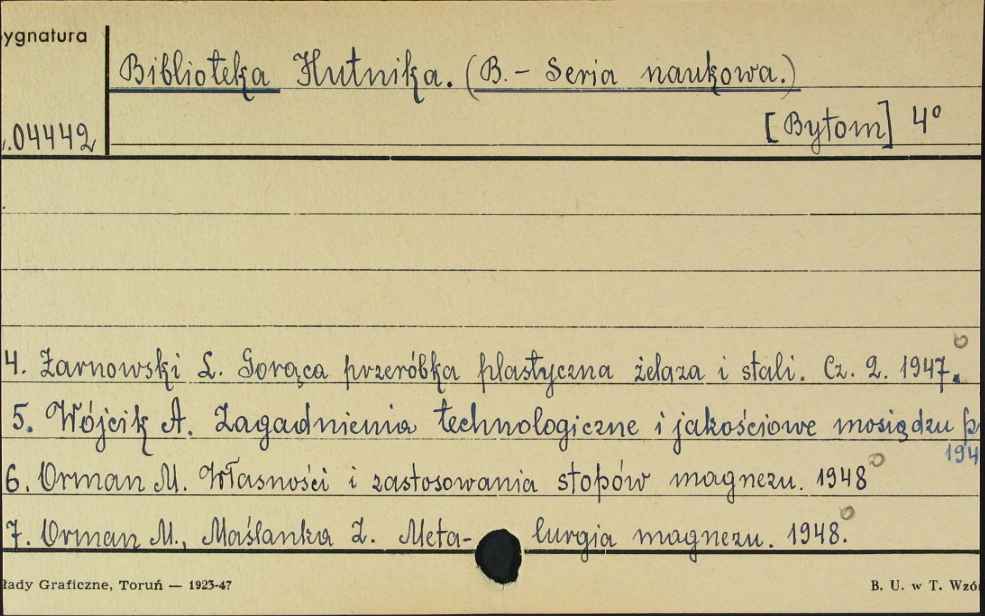 ygnatura
Biblioteka Hutnika. (B. - Seria naukowa.)
.04442
[Bytom] 4°
4. Żarnowski L. Gorąca przeróbka plastyczna żelaza i stali. Cz. 2. 1947.
5. Wójcik A. Zagadnienia technologiczne i jakościowe mosiądzu
194
6. Orman M. Własności i zastosowania stopów magnezu. 1948
7. Orman M., Maślanka Z. Meta- lurgia magnezu. 1948.
łady Graficzne, Toruń — 1925-47
B. U. w T. Wzó